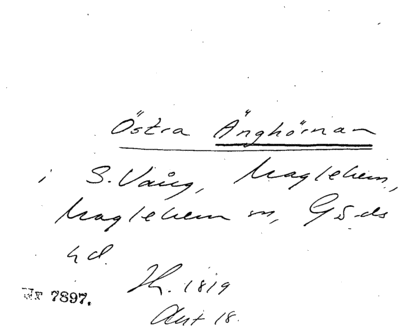 Östra Änghörnan
i S. Vång, Maglehem,
Maglehem sn, Gärds
hd.
Nr 7897.
H. 1819
Akt 18.